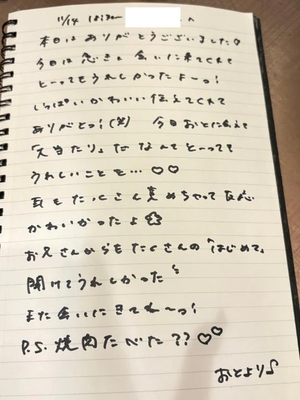 11/14 へ
本日はありがとうございました♡
今日は急きょ会いに来てくれて
とーってもうれしかったよーっ!
しっぱいかわいい伝えてくれて
ありがとっ!(笑) 今日おとに会えて
「大当たり」だなんてとーっても
うれしいことを…♡♡
耳もたくさん責めちゃって反応
かわいかったよ
お兄さんからもたくさんの「はじめて」
聞けてうれしかった
また会いにきてねーっ!
P.S. 焼肉たべた??♡♡
おとより♪